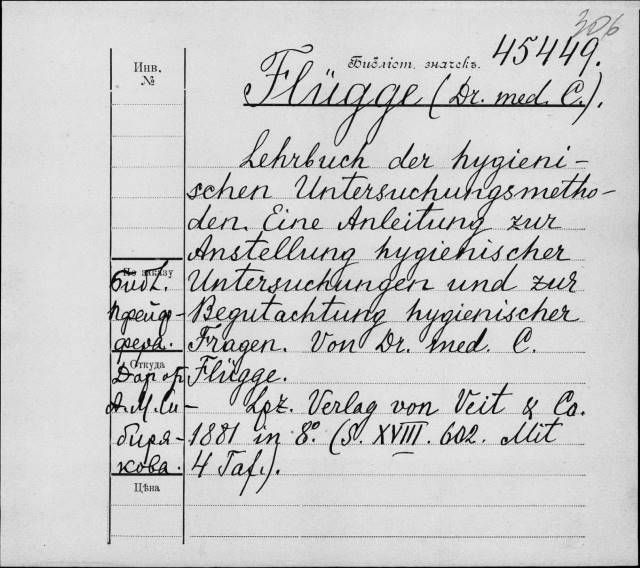 306
Библіот. значекъ. 45449.
Инв.
№
Flügge (Dr. med. C.).
Lehrbuch der hygieni-
schen Untersuchungsmetho-
den. Eine Anleitung zur
Anstellung hygienischer
Untersuchungen und zur
Begutachtung hygienischer
Fragen. Von Dr. med. C.
Flügge.
Lpz. Verlag von Veit & Co.
1881 in 8°. (S. XVIII. 602. Mit
4 Taf.).
По заказу
Библ.
Пфейф-
фера.
Откуда
Дар от
А. М. Си-
биря-
кова.
Цѣна